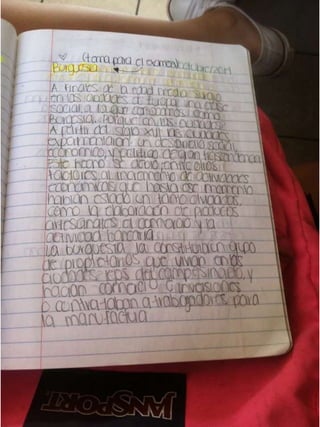 (toma para el examen) octubre/2019
Burguesía
A finales de la edad media surgió
en las ciudades de Europa una clase
social a la que conocemos como
A partir del siglo XVI las ciudades
experimentaron un desarrollo social,
económico y político de gran trascendencia
Este hecho se debió, entre otros
factores, al incremento de actividades
económicas que hasta ese momento
habían estado un tanto olvidadas,
como la elaboración de productos
artesanales el comercio y la
actividad bancaria.
La burguesía la constituían un grupo
de propietarios que vivían en las
ciudades, lejos del campesinado, y
hacían comercio e inversiones
o contrataban a trabajadores para
la manufactura
JANSPORT